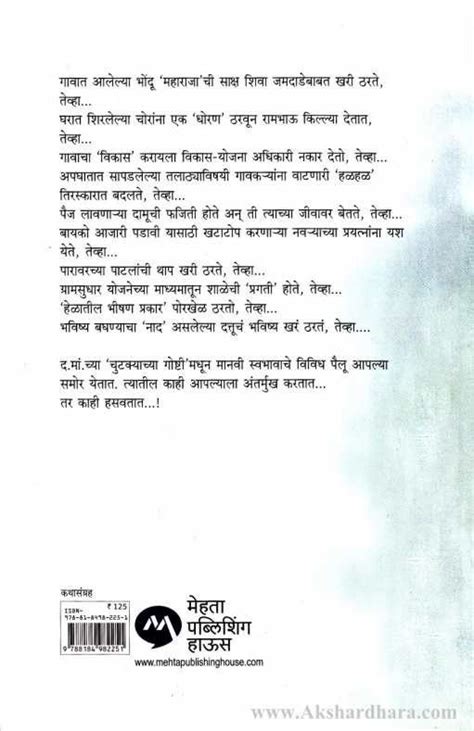 गावात आलेल्या भोंदू 'महाराजा'ची साक्ष शिवा जमदाडेबाबत खरी ठरते,
तेव्हा...
घरात शिरलेल्या चोरांना एक 'धोरण' ठरवून रामभाऊ किल्ल्या देतात,
तेव्हा...
गावाचा 'विकास' करायला विकास-योजना अधिकारी नकार देतो, तेव्हा...
अपघातात सापडलेल्या तलाठ्याविषयी गावकऱ्यांना वाटणारी 'हळहळ'
तिरस्कारात बदलते, तेव्हा...
पैज लावणाऱ्या दामूची फजिती होते अन् ती त्याच्या जीवावर बेतते, तेव्हा...
बायको आजारी पडावी यासाठी खटाटोप करणाऱ्या नवऱ्याच्या प्रयत्नांना यश
येते, तेव्हा...
पारावरच्या पाटलांची थाप खरी ठरते, तेव्हा...
ग्रामसुधार योजनेच्या माध्यमातून शाळेची 'प्रगती' होते, तेव्हा...
'हेळातील भीषण प्रकार' पोरखेळ ठरतो, तेव्हा...
भविष्य बघण्याचा 'नाद' असलेल्या दत्तूचं भविष्य खरं ठरतं, तेव्हा....
द.मां.च्या 'चुटक्याच्या गोष्टी'मधून मानवी स्वभावाचे विविध पैलू आपल्या
समोर येतात. त्यातील काही आपल्याला अंतर्मुख करतात...
तर काही हसवतात...!
कथासंग्रह
ISBN- ₹ 125
978-81-8498-225-1
9 788184 982251
मेहता
पब्लिशिंग
हाऊस
www.mehtapublishinghouse.com
www.Akshardhara.com